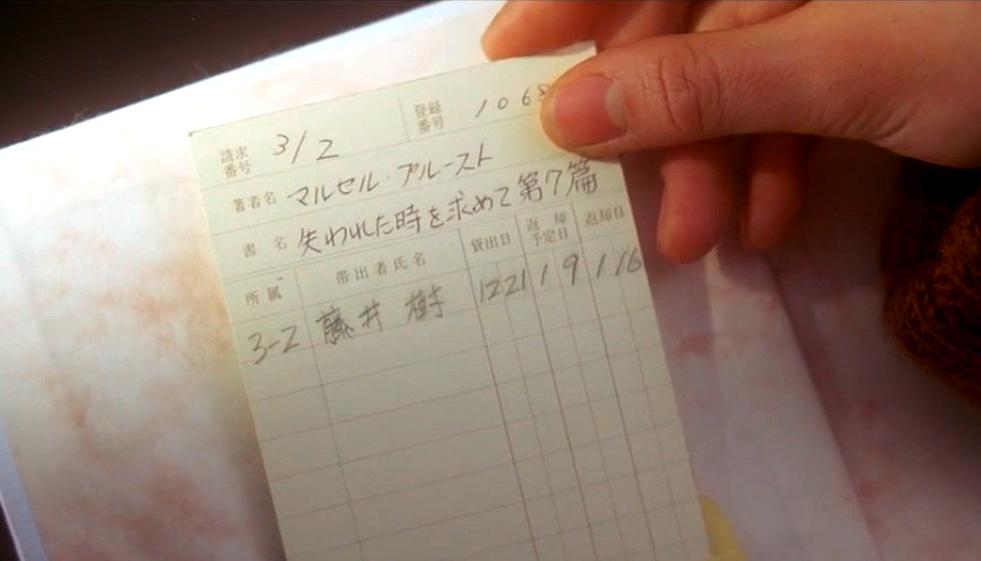 請求番号 312 登録番号 1068
著者名 マルセル・プルースト
書名 失われた時を求めて第7篇
所属 帯出者氏名 貸出日 返却予定日 返却日
3-2 藤井 樹 12 21 1 9 1 16